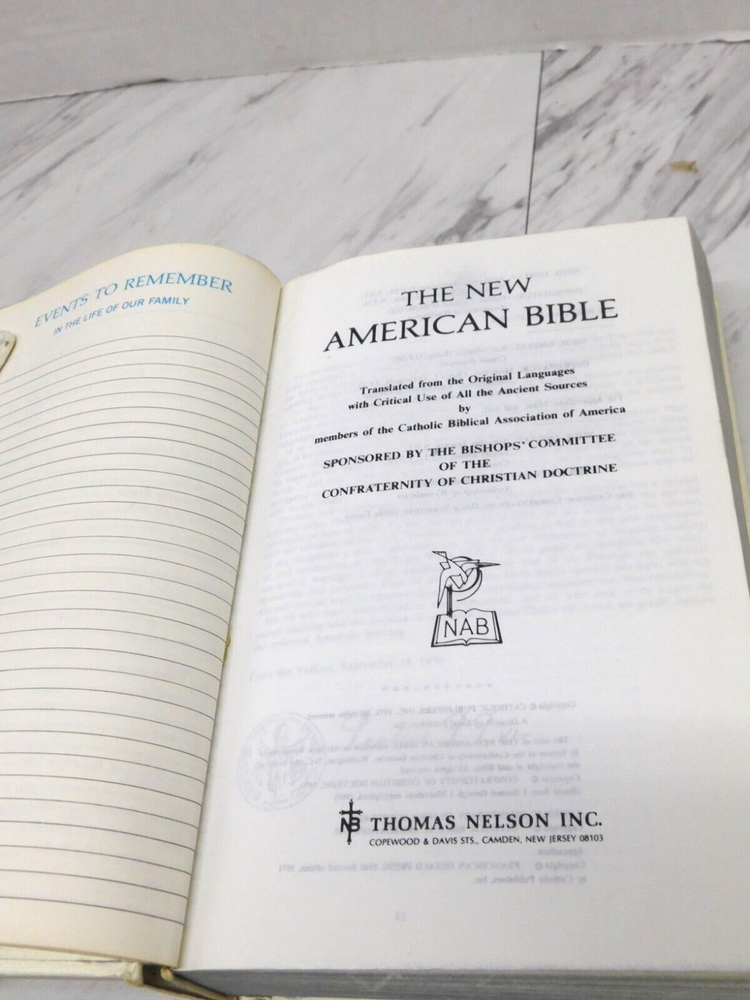 EVENTS TO REMEMBER
IN THE LIFE OF OUR FAMILY
THE NEW
AMERICAN BIBLE
Translated from the Original Languages
with Critical Use of All the Ancient Sources
by
members of the Catholic Biblical Association of America
SPONSORED BY THE BISHOPS' COMMITTEE
OF THE
CONFRATERNITY OF CHRISTIAN DOCTRINE
NAB
NB THOMAS NELSON INC.
COPEWOOD & DAVIS STS., CAMDEN, NEW JERSEY 08103